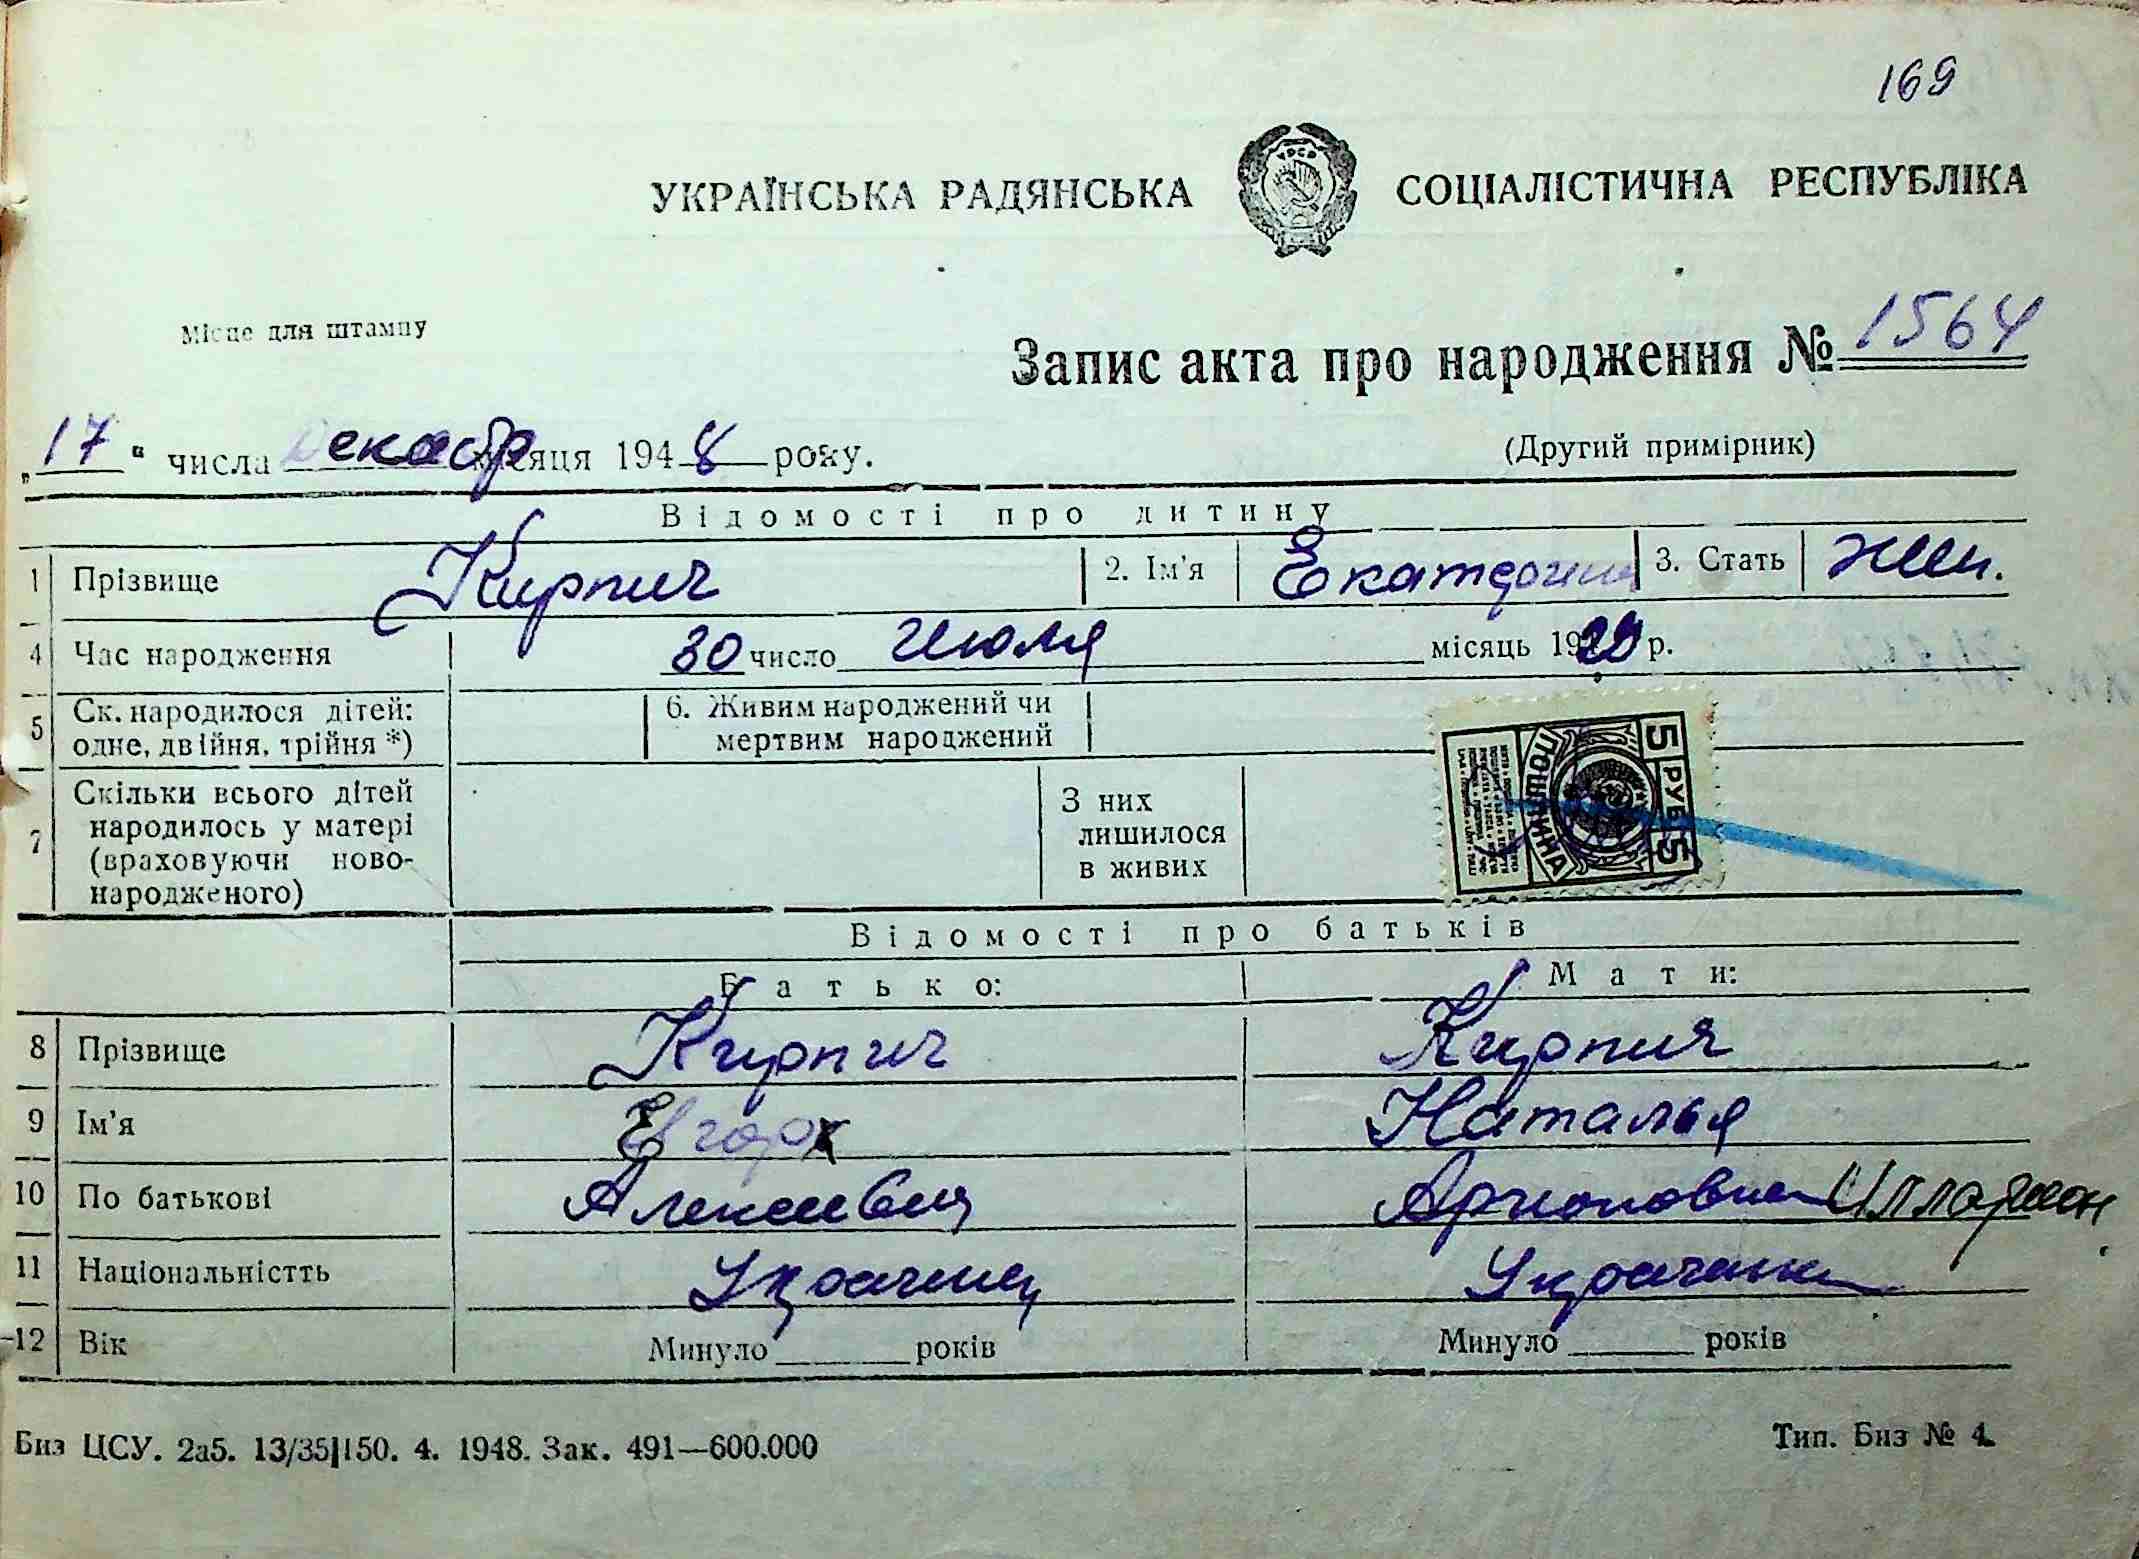 169
УКРАЇНСЬКА РАДЯНСЬКА СОЦІАЛІСТИЧНА РЕСПУБЛІКА
Місце для штампу
Запис акта про народження № 1564
„17“ числа декабр місяця 1948 року.
(Другий примірник)
Відомості про дитину
1 Прізвище Кирпич 2. Ім'я Екатерина 3. Стать жен.
4 Час народження 30 число Июля місяць 19 р.
5 Ск. народилося дітей: одне, двійня, трійня *) 6. Живим народжений чи мертвим народжений
7 Скільки всього дітей народилось у матері (враховуючи ново-народженого) З них лишилося в живих
5 РУБ 5
ПОШЛИНА
Відомості про батьків
Батько: Мати:
8 Прізвище Кирпич Кирпич
9 Ім'я Егор Наталья
10 По батькові Алексеевич Арионовна Илларион
11 Національністть Украинец Украинка
12 Вік Минуло ____ років Минуло ____ років
Биз ЦСУ. 2а5. 13/35|150. 4. 1948. Зак. 491—600.000
Тип. Биз № 4.